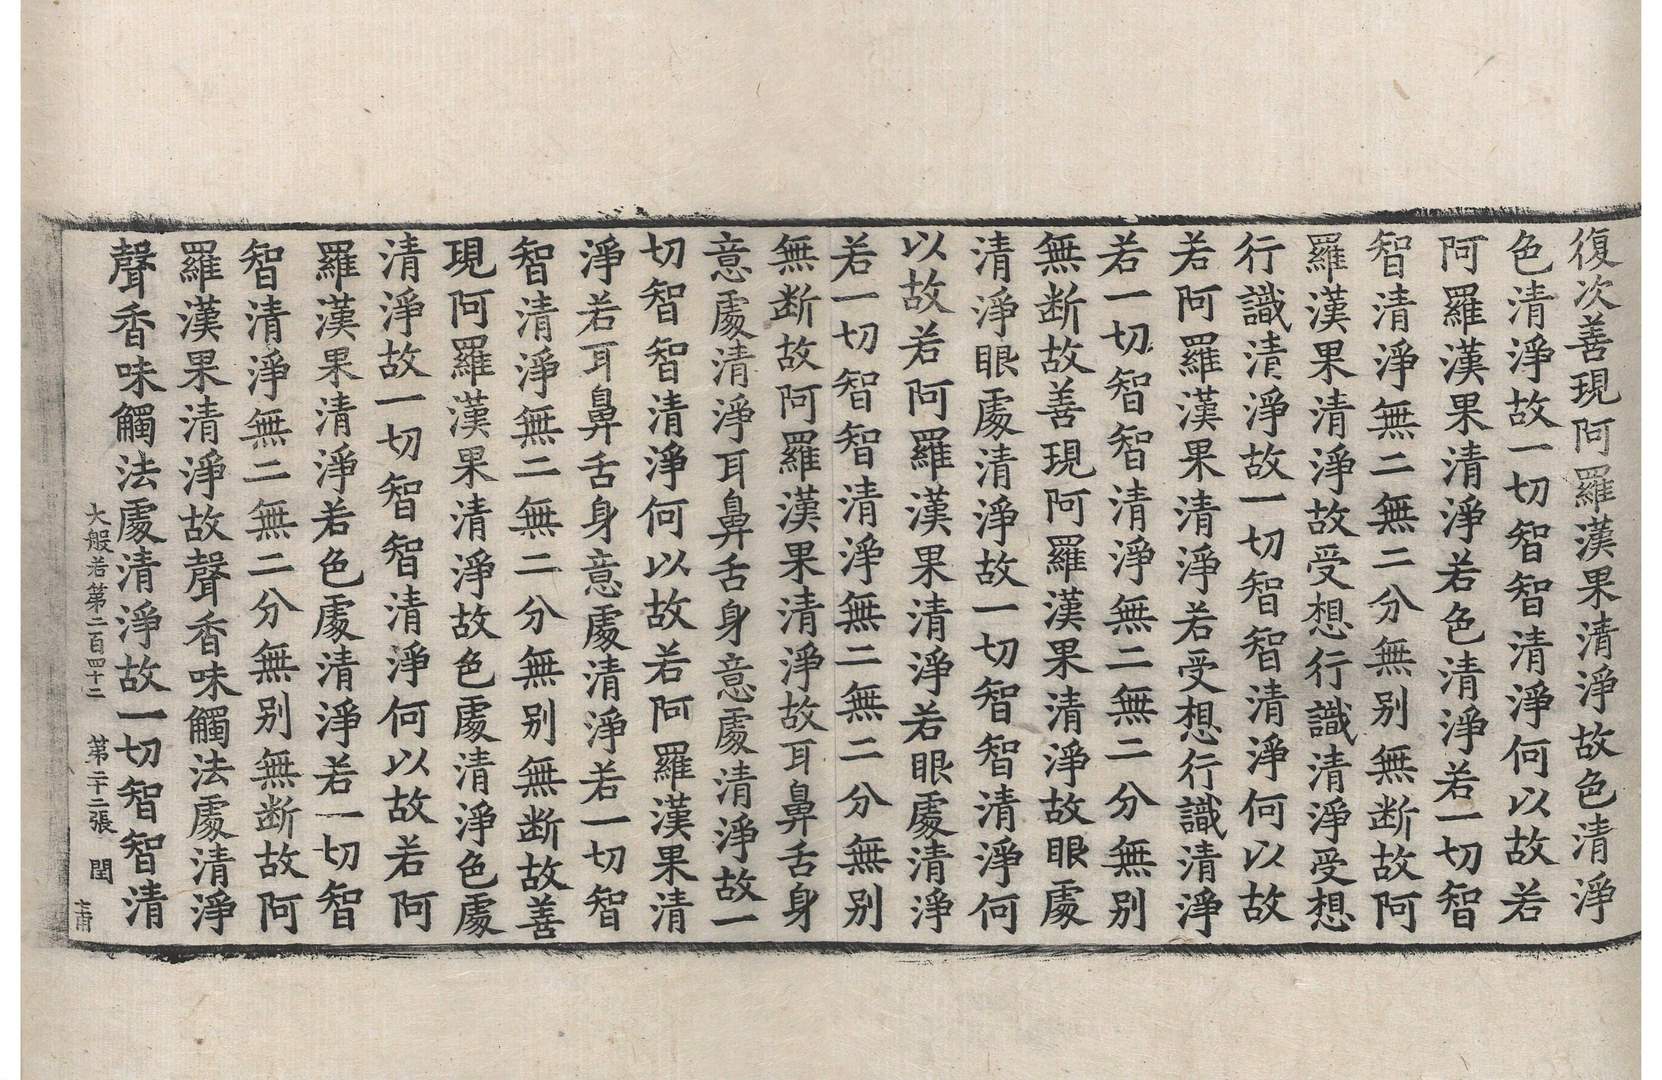 復次善現阿羅漢果清淨故色清淨
色清淨故一切智智清淨何以故若
阿羅漢果清淨若色清淨若一切智
智清淨無二無二分無別無断故阿
羅漢果清淨故受想行識清淨受想
行識清淨故一切智智清淨何以故
若阿羅漢果清淨若受想行識清淨
若一切智智清淨無二無二分無別
無断故善現阿羅漢果清淨故眼處
清淨眼處清淨故一切智智清淨何
以故若阿羅漢果清淨若眼處清淨
若一切智智清淨無二無二分無別
無断故阿羅漢果清淨故耳鼻舌身
意處清淨耳鼻舌身意處清淨故一
切智智清淨何以故若阿羅漢果清
淨若耳鼻舌身意處清淨若一切智
智清淨無二無二分無別無断故善
現阿羅漢果清淨故色處清淨色處
清淨故一切智智清淨何以故若阿
羅漢果清淨若色處清淨若一切智
智清淨無二無二分無別無断故阿
羅漢果清淨故聲香味觸法處清淨
聲香味觸法處清淨故一切智智清
大般若第二百四十二 第二十二張 閏